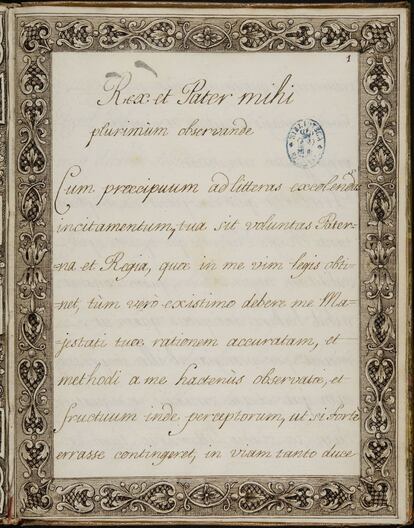 1
Rex et Pater mihi
plurimùm observande
BIBLIOTECA
Cum præcipuum ad litteras excolendas
incitamentum, tua sit voluntas Pater=
=na et Regia, quæ in me vim legis obti=
=net, tùm verò existimo debere me Ma=
=jestati tuæ rationem accuratam, et
methodi a me hactenùs observatæ, et
fructuum inde perceptorum, ut si forte
errasse contingeret, in viam tanto duce